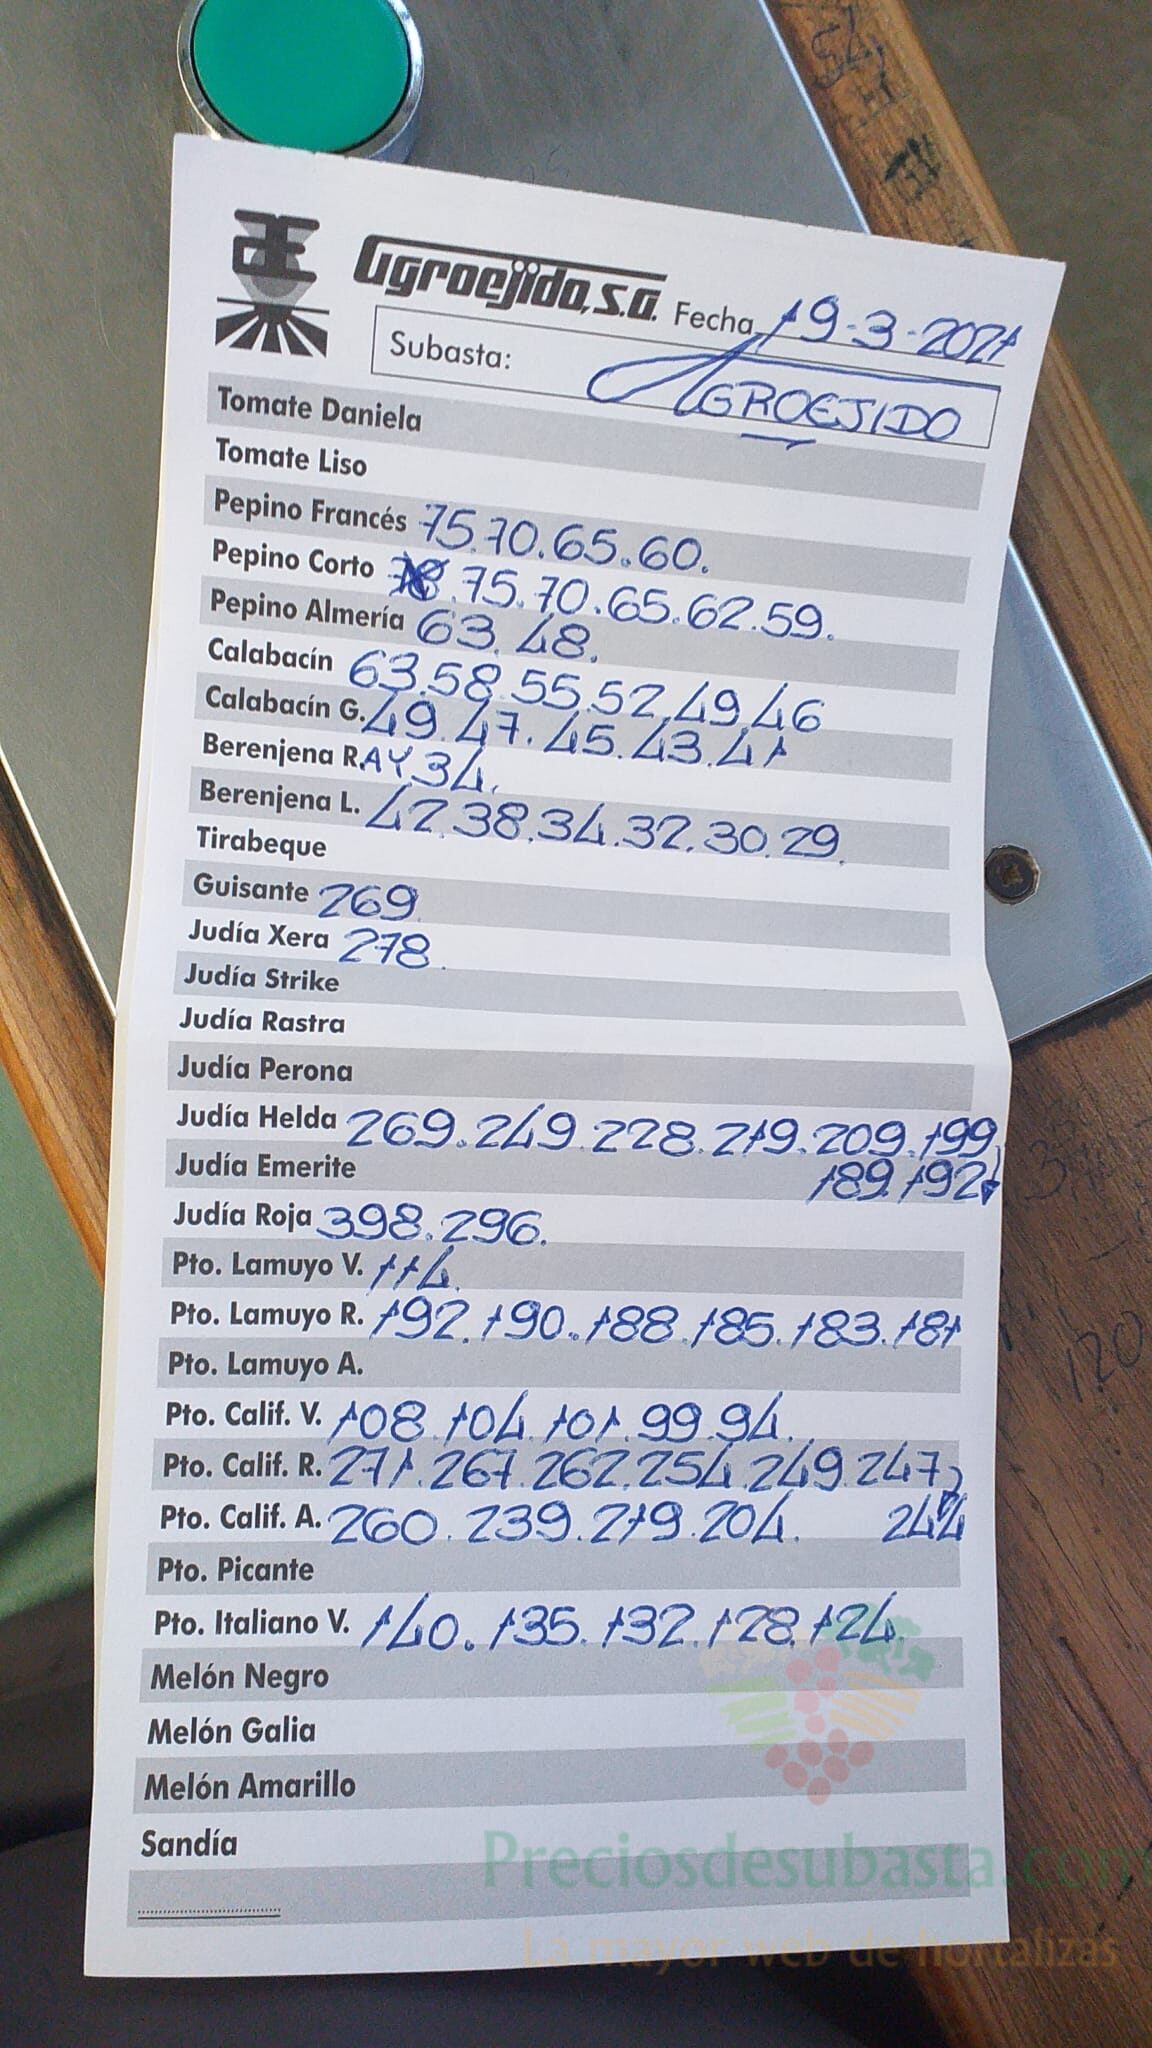 Agroejido, S.A. Fecha 19-3-2021
Subasta: AGROEJIDO
Tomate Daniela
Tomate Liso
Pepino Francés 75.70.65.60.
Pepino Corto 75.70.65.62.59.
Pepino Almería 63.48.
Calabacín 63.58.55.52.49.46
Calabacín G. 49.47.45.43.41
Berenjena RAY 34.
Berenjena L. 42.38.34.32.30.29.
Tirabeque
Guisante 269
Judía Xera 278.
Judía Strike
Judía Rastra
Judía Perona
Judía Helda 269.249.228.219.209.199
189.192
Judía Emerite
Judía Roja 398.296.
Pto. Lamuyo V. 114.
Pto. Lamuyo R. 192.190.188.185.183.181
Pto. Lamuyo A.
Pto. Calif. V. 108.104.101.99.94.
Pto. Calif. R. 271.267.262.254.249.247
244
Pto. Calif. A. 260.239.219.204.
Pto. Picante
Pto. Italiano V. 140.135.132.128.124.
Melón Negro
Melón Galia
Melón Amarillo
Sandía
Preciosdesubasta.com
La mayor web de hortalizas